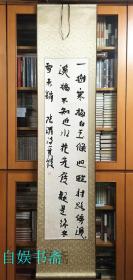 一樹寒梅白玉條迥臨村路傍
溪橋不知近水花先發疑是經冬
雪未銷
自娱书斋